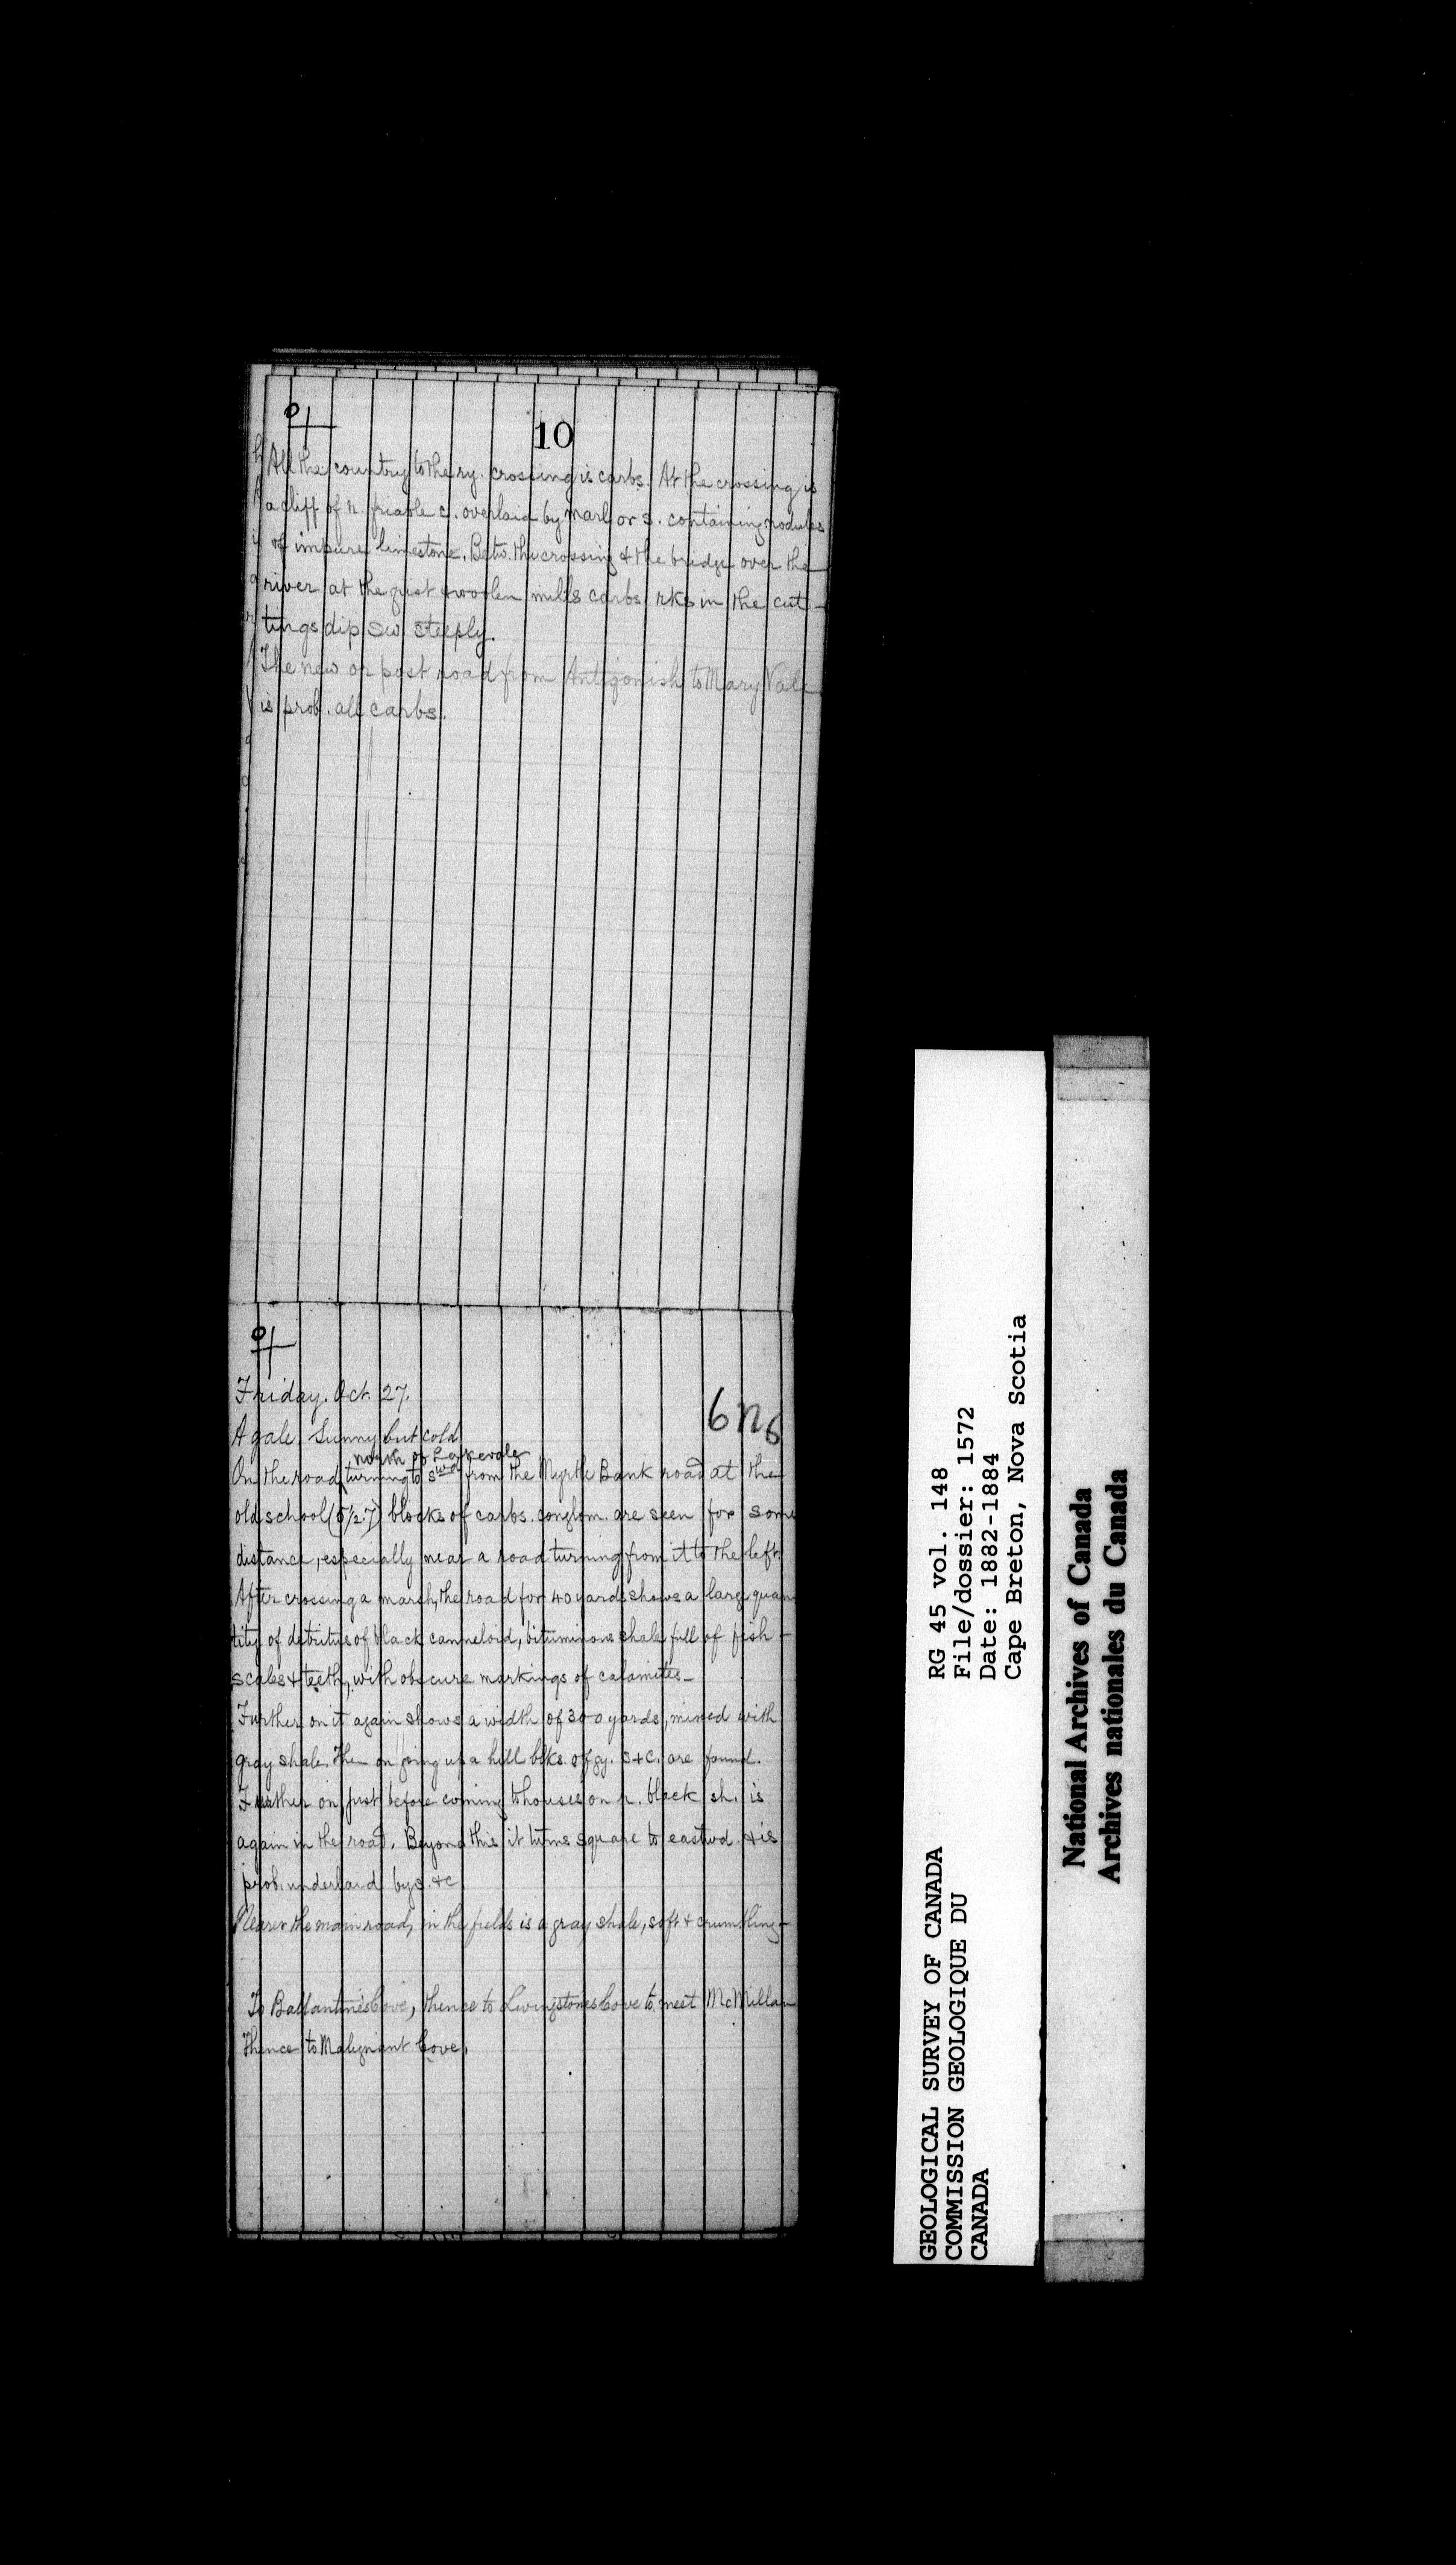 10
All the country to the ry. crossing is carbs. At the crossing is
a cliff of r. friable c. overlaid by marl or s. containing nodules
of impure limestone. Betw. the crossing & the bridge over the
river at the grist & woolen mills carbs. rks in the cut-
tings dip SW steeply.
The new or post road from Antigonish to Mary Vale
is prob. all carbs.
Friday. Oct. 27.
6n6
A gale. Sunny but cold
north of Lakevale
On the road turning to swd from the Myrtle Bank road at the
old school blocks of carbs. conglom. are seen for some
distance, especially near a road turning from it to the left.
After crossing a marsh, the road for 40 yards shows a large quan
tity of detritus of black canneloid, bituminous shale full of fish-
scales & teeth, with obscure markings of calamites-
Further on it again shows a width of 300 yards, mixed with
gray shale. Then on going up a hill blks. of gy. s + c. are found.
Further on, just before coming to houses on r. black sh. is
again in the road. Beyond this it turns square to eastwd. & is
prob. underlaid by s. & c
Nearer the main road, in the fields is a gray shale, soft & crumbling-
To Ballantine's Cove, thence to Livingstones Cove to meet McMillan
Thence to Malignant Cove.
GEOLOGICAL SURVEY OF CANADA
COMMISSION GEOLOGIQUE DU
CANADA
RG 45 vol. 148
File/dossier: 1572
Date: 1882-1884
Cape Breton, Nova Scotia
National Archives of Canada
Archives nationales du Canada